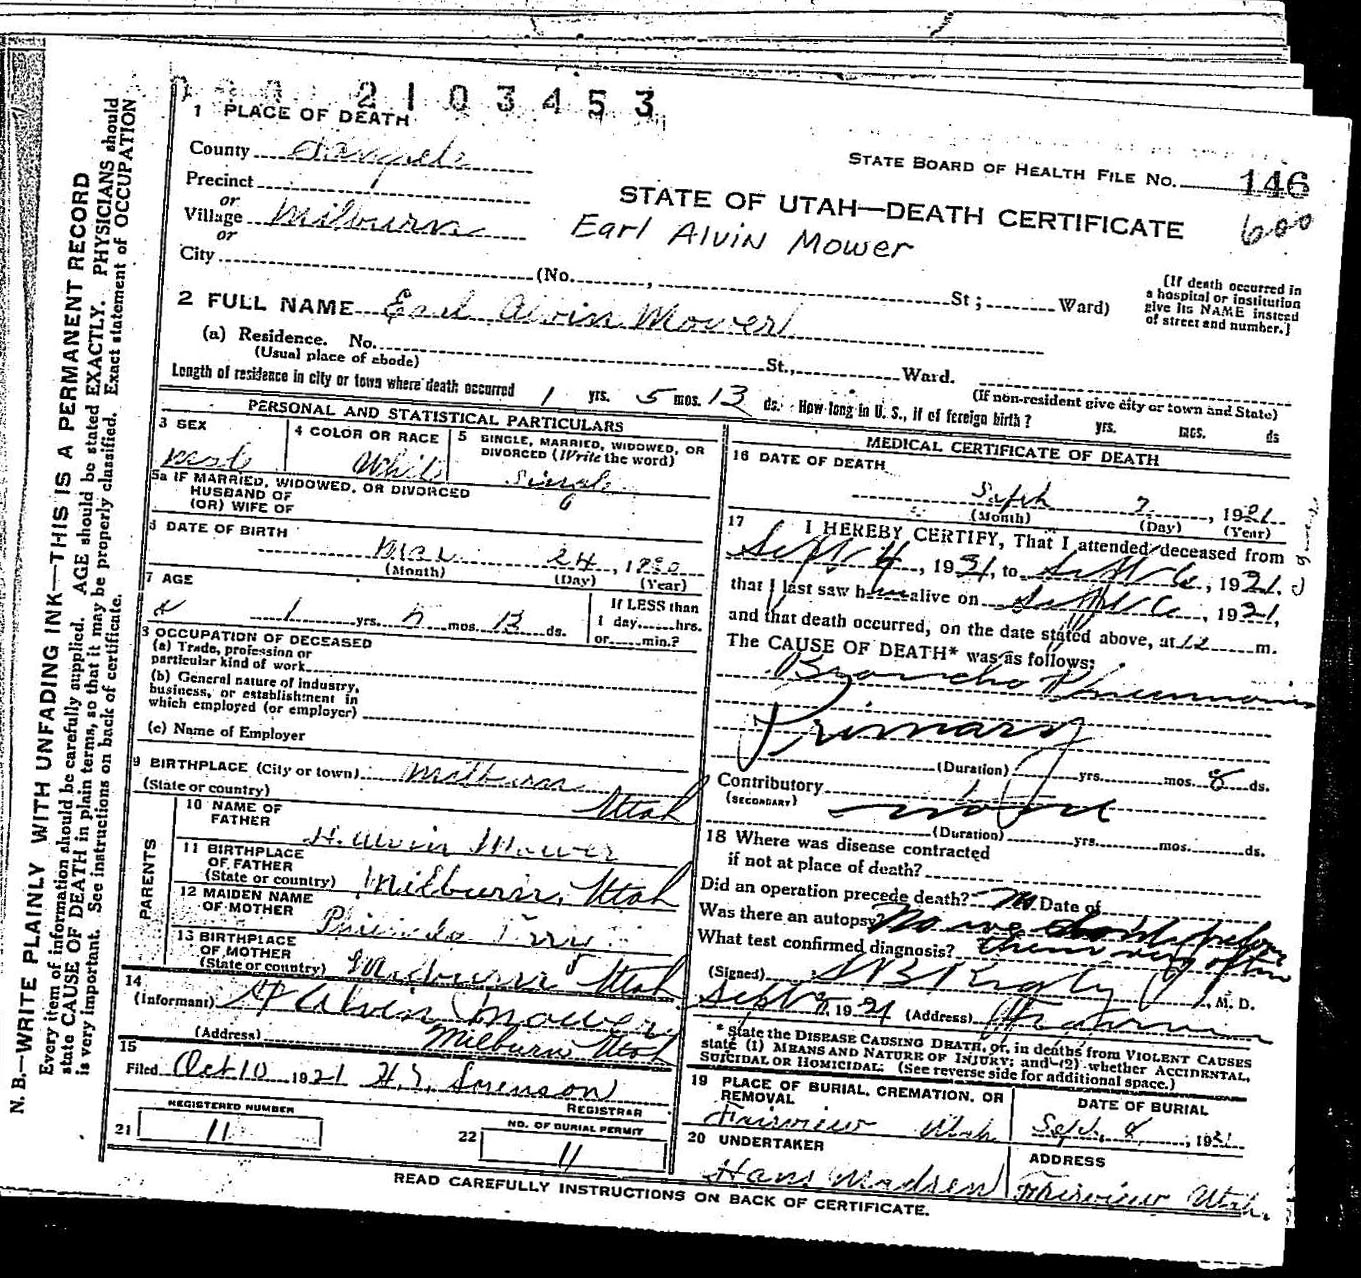 2103453
1 PLACE OF DEATH
County Sanpete
STATE BOARD OF HEALTH FILE NO. 146
600
Precinct
or
Village Milburn
or
City
STATE OF UTAH—DEATH CERTIFICATE
Earl Alvin Mower
(No. , St; Ward)
[If death occurred in
a hospital or institution
give its NAME instead
of street and number.]
2 FULL NAME Earl Alvin Mower
(a) Residence. No. St., Ward.
(Usual place of abode)
(If non-resident give city or town and State)
Length of residence in city or town where death occurred 1 yrs. 5 mos. 13 ds. How long in U. S., if of foreign birth? yrs. mos. ds
PERSONAL AND STATISTICAL PARTICULARS
3 SEX
4 COLOR OR RACE White
5 SINGLE, MARRIED, WIDOWED, OR
DIVORCED (Write the word)
Single
5a IF MARRIED, WIDOWED, OR DIVORCED
HUSBAND OF
(OR) WIFE OF
6 DATE OF BIRTH
Mar 24, 19
(Month) (Day) (Year)
7 AGE
1 yrs. 5 mos. 13 ds.
If LESS than
1 day hrs.
or min.?
8 OCCUPATION OF DECEASED
(a) Trade, profession or
particular kind of work
(b) General nature of industry,
business, or establishment in
which employed (or employer)
(c) Name of Employer
9 BIRTHPLACE (City or town) Milburn
(State or country) Utah
PARENTS
10 NAME OF
FATHER H. Alvin Mower
11 BIRTHPLACE
OF FATHER
(State or country) Milburn, Utah
12 MAIDEN NAME
OF MOTHER
13 BIRTHPLACE
OF MOTHER
(State or country) Milburn Utah
14
(Informant) H Alvin Mower
(Address) Milburn Utah
15
Filed Oct 10 1921 H. S. Sorenson
REGISTRAR
21 REGISTERED NUMBER
11
22 NO. OF BURIAL PERMIT
11
MEDICAL CERTIFICATE OF DEATH
16 DATE OF DEATH
Sept 7, 1921
(Month) (Day) (Year)
17 I HEREBY CERTIFY, That I attended deceased from
Sept 4, 1921, to Sept 6, 1921.
that I last saw him alive on Sept 6, 1921,
and that death occurred, on the date stated above, at 12 m.
The CAUSE OF DEATH* was as follows:
Broncho Pneumonia
Primary
(Duration) yrs. mos. 8 ds.
Contributory
(SECONDARY) none
(Duration) yrs. mos. ds.
18 Where was disease contracted
if not at place of death?
Did an operation precede death? No Date of
Was there an autopsy? No
What test confirmed diagnosis?
(Signed) , M. D.
Sept 9, 1921 (Address) Fairview
* State the DISEASE CAUSING DEATH, or, in deaths from VIOLENT CAUSES
state (1) MEANS AND NATURE OF INJURY; and (2) whether ACCIDENTAL,
SUICIDAL OR HOMICIDAL. (See reverse side for additional space.)
19 PLACE OF BURIAL, CREMATION, OR
REMOVAL
Fairview Utah
DATE OF BURIAL
Sept. 8, 1921
20 UNDERTAKER
Hans Madsen
ADDRESS
Fairview Utah.
READ CAREFULLY INSTRUCTIONS ON BACK OF CERTIFICATE.
N. B.—WRITE PLAINLY WITH UNFADING INK—THIS IS A PERMANENT RECORD
Every item of information should be carefully supplied. AGE should be stated EXACTLY. PHYSICIANS should
state CAUSE OF DEATH in plain terms, so that it may be properly classified. Exact statement of OCCUPATION
is very important. See instructions on back of certificate.